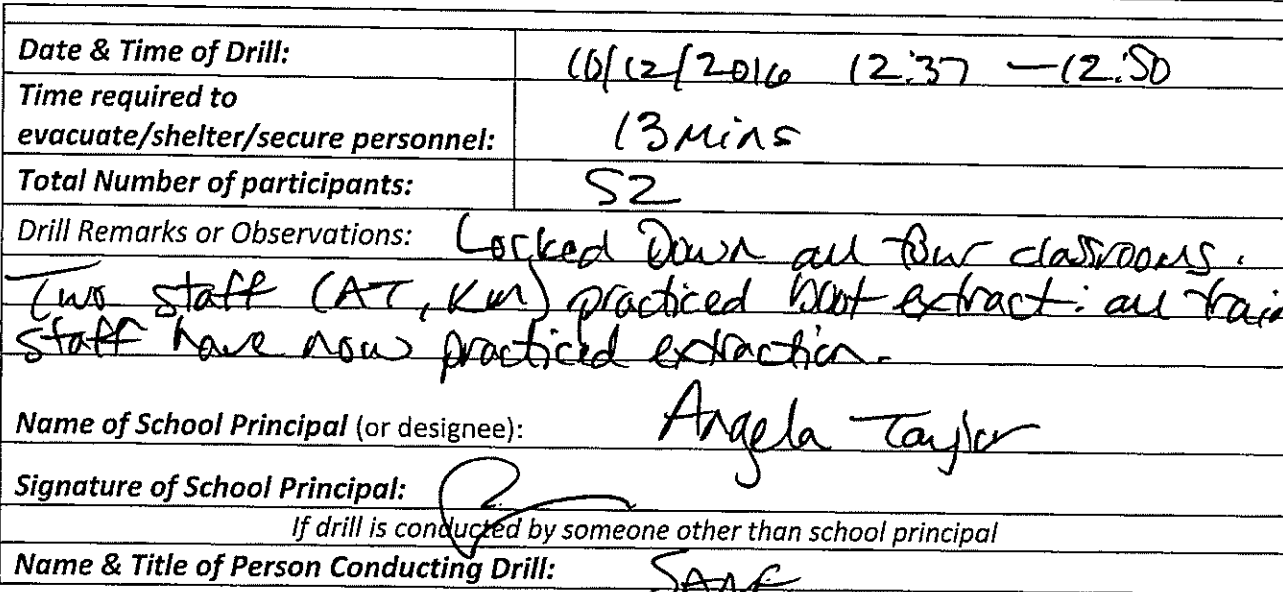 Date & Time of Drill: 10/12/2016 12:37 – 12:50
Time required to
evacuate/shelter/secure personnel: 13 Mins
Total Number of participants: 52
Drill Remarks or Observations: Locked Down all four classrooms.
Two staff (AT, KM) practiced extract: all
staff have now practiced extraction.
Name of School Principal (or designee): Angela Taylor
Signature of School Principal:
If drill is conducted by someone other than school principal
Name & Title of Person Conducting Drill: SAME